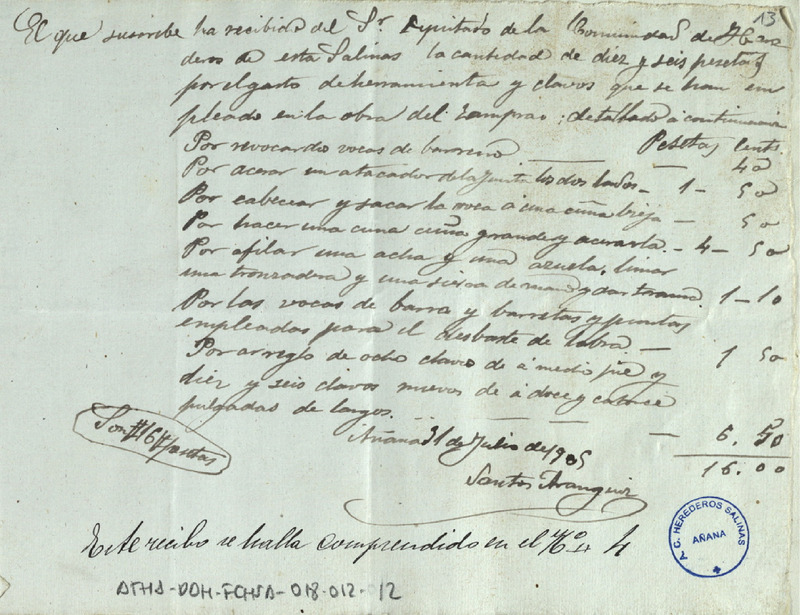 13
El que suscribe ha recibido del Sr Diputado de la Comunidad de Here
deros de esta Salinas la cantidad de diez y seis pesetas
por el gasto de herramienta y clavos que se han em
pleado en la obra del ; detallado a continuacion
Pesetas Cents.
Por revocar do vocas de barreno — 40
Por acerar un atacador de la Junta los dos lados — 1 — 50
Por cabecear y sacar la voca á una cuña bieja — 50
Por hacer una cuna cuña grande y acerarla — 4 — 50
Por afilar una acha y una azuela, limar
una tronzadera y una sierra de mano y dar 1 — 10
Por las vocas de barra y barretas y puntas
empleadas para el desbaste de labra — 1 50
Por arreglo de ocho clavos de á medio pie y
diez y seis clavos nuevos de á doce y catorce
pulgadas de largos. — 6. 50
16.00
Son #16# pesetas
Añana 31 de Julio de 1905
Santos Aranguiz
Este recibo se halla comprendido en el No 4
A. C. HEREDEROS SALINAS
AÑANA
ATHA-DOH-FCHSA-018-012-12